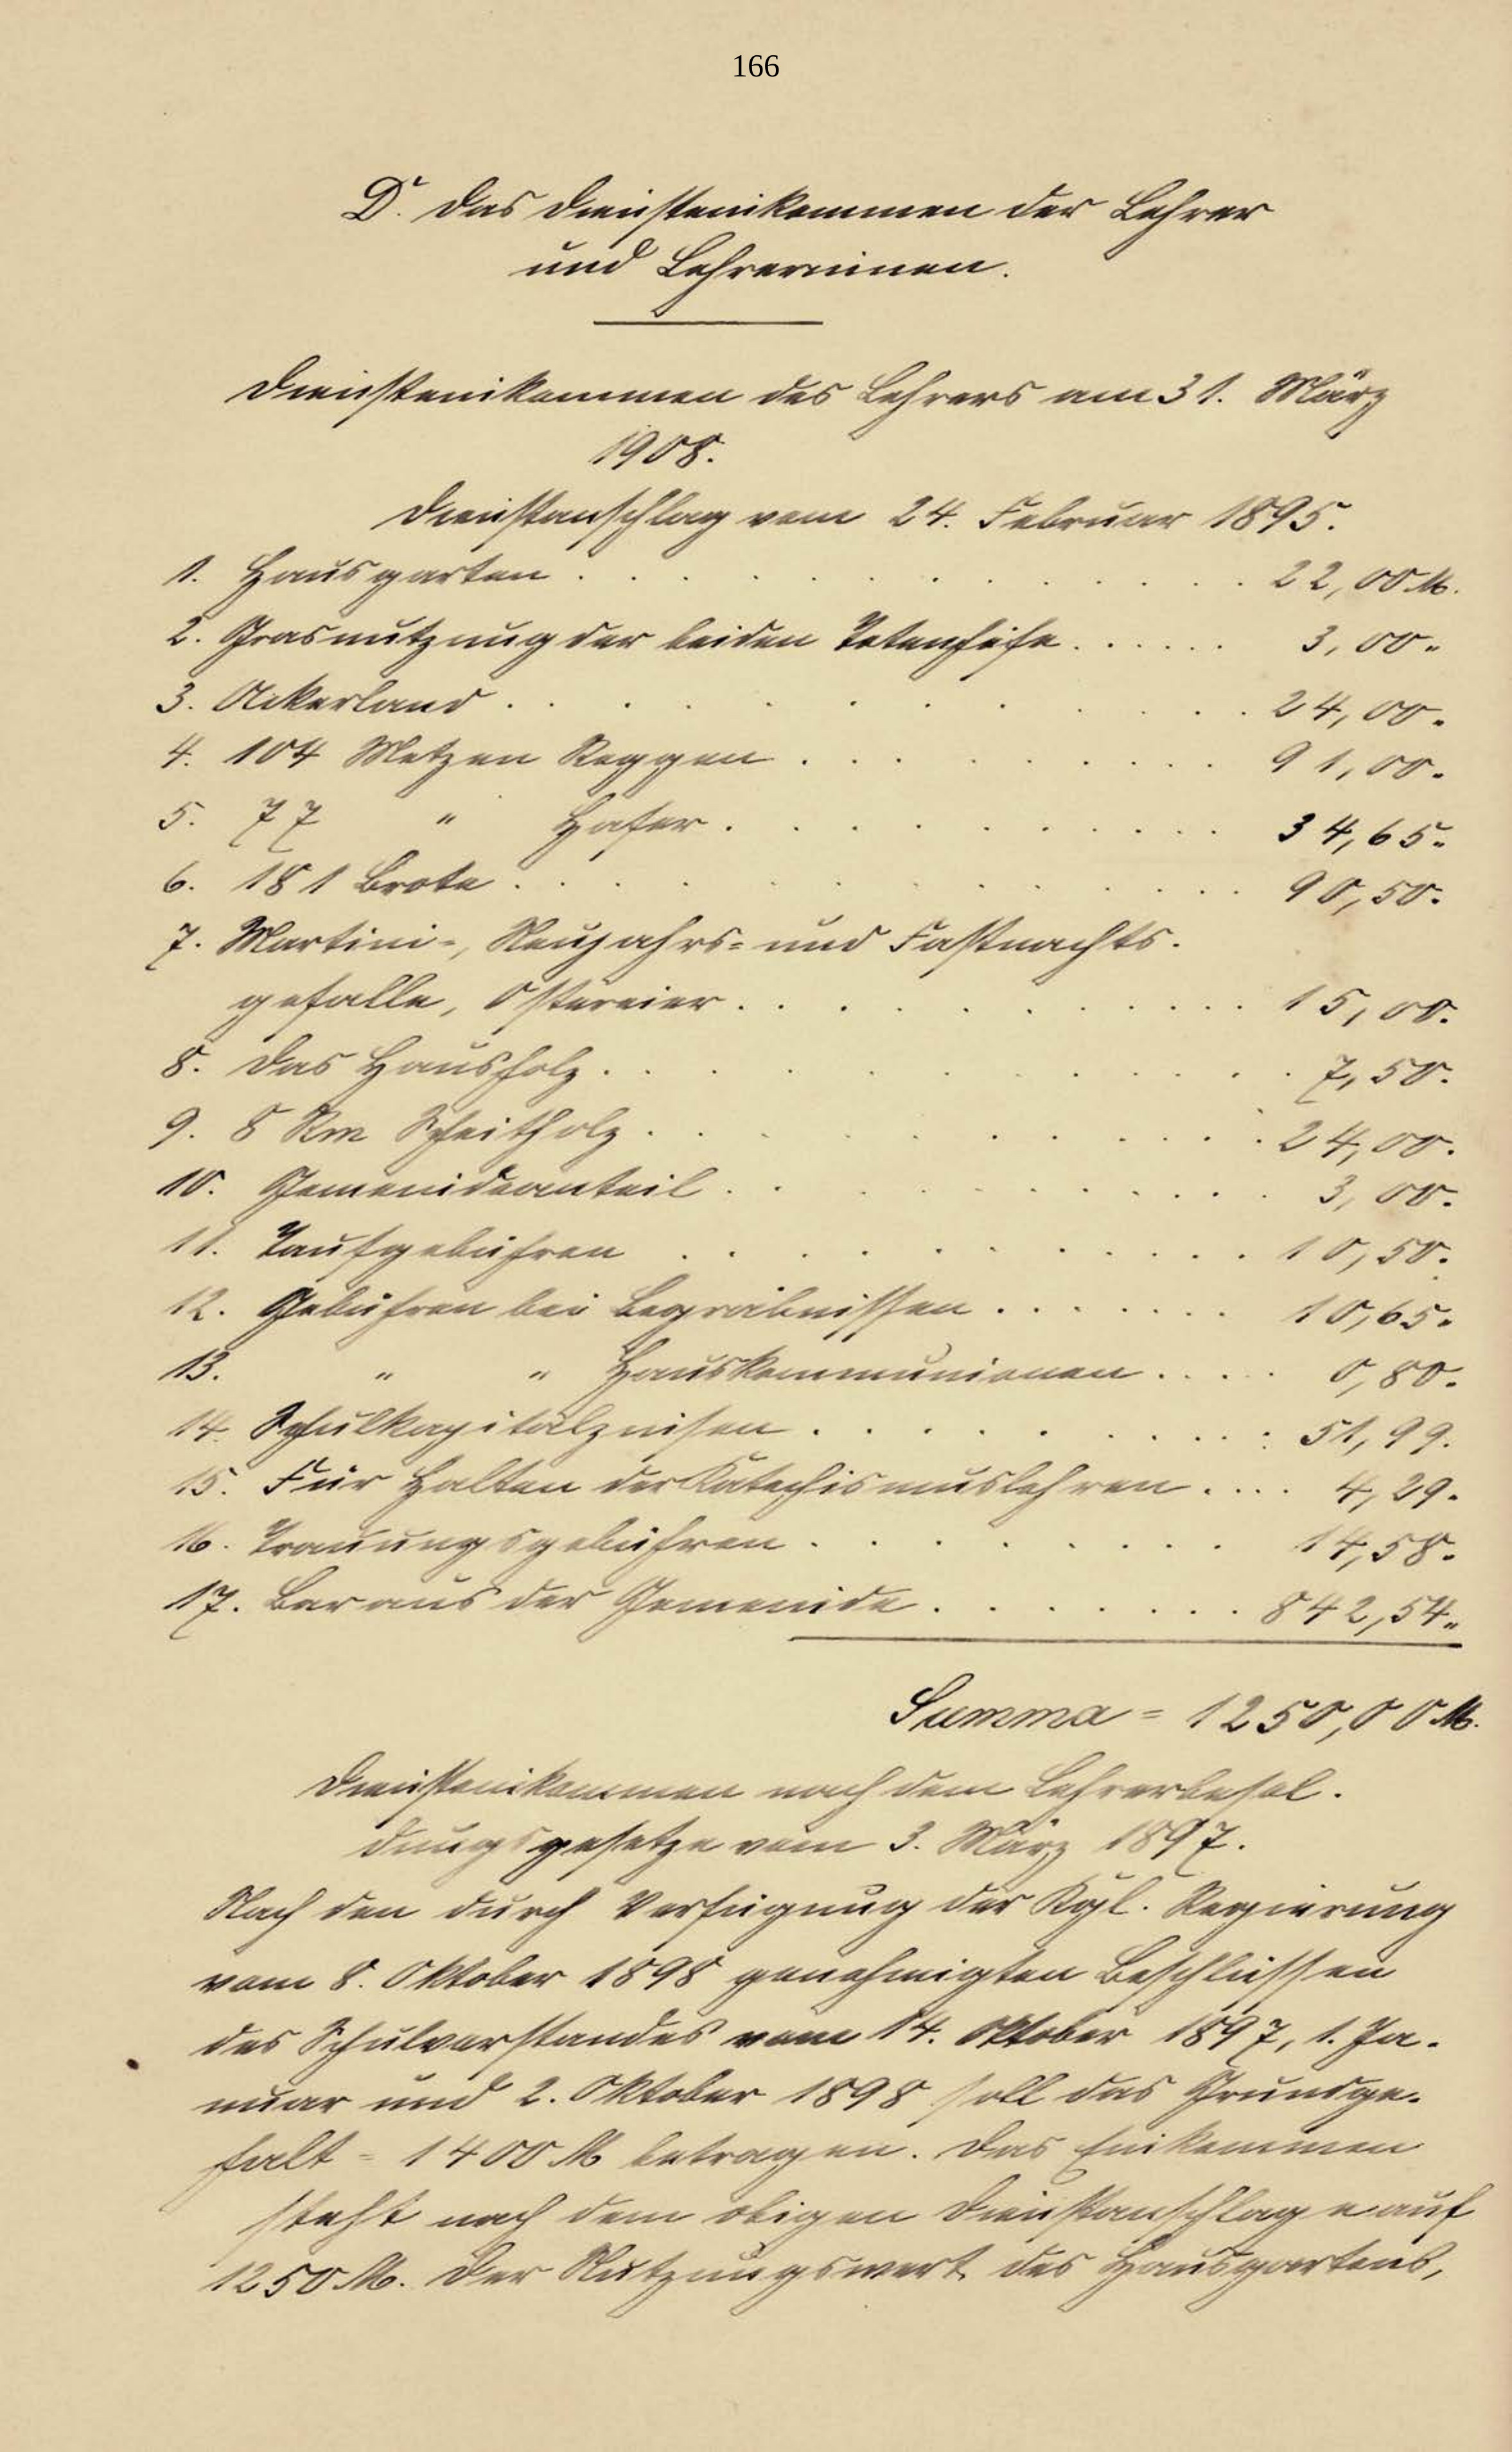 166
D. Das Diensteinkommen der Lehrer
und Lehrerinnen.
Diensteinkommen des Lehrers am 31. März
1908.
Dienstanschlag vom 24. Februar 1895.
1. Hausgarten . . . . . . . . . . 22,00 M.
2. Grasnutzung der beiden Totenhöfe . . . . . . 3,00 "
3. Ackerland . . . . . . . . . . 24,00 "
4. 104 Metzen Roggen . . . . . . . . . 91,00 "
5. 77 " Hafer . . . . . . . . . 34,65 "
6. 181 Brote . . . . . . . . . . 90,50 "
7. Martini-, Neujahrs- und Fastnachts-
gefälle, Ostereier . . . . . . . . . 15,00 "
8. Das Hausholz . . . . . . . . . . 7,50 "
9. 8 Rm Scheitholz . . . . . . . . . . 24,00 "
10. Gemeindeanteil . . . . . . . . . . 3,00 "
11. Taufgebühren . . . . . . . . . . 10,50 "
12. Gebühren bei Begräbnissen . . . . . . . 10,65 "
13. " " Hauskommunionen . . . . . 0,80 "
14. Schulkapitalzinsen . . . . . . . . . 51,99 "
15. Für Halten der Katechismuslehren . . . . 4,29 "
16. Trauungsgebühren . . . . . . . . 14,58 "
17. Bar aus der Gemeinde . . . . . . . . 842,54 "
Summa = 1250,00 M.
Diensteinkommen nach dem Lehrerbesol-
dungsgesetze vom 3. März 1897.
Nach den durch Verfügung der Kgl. Regierung
vom 8. Oktober 1898 genehmigten Beschlüssen
des Schulvorstandes vom 14. Oktober 1897, 1. Ja-
nuar und 2. Oktober 1898 soll das Grundge-
halt = 1400 M betragen. Das Einkommen
steht nach dem obigen Dienstanschlage auf
1250 M. Der Nutzungswert des Hausgartens,